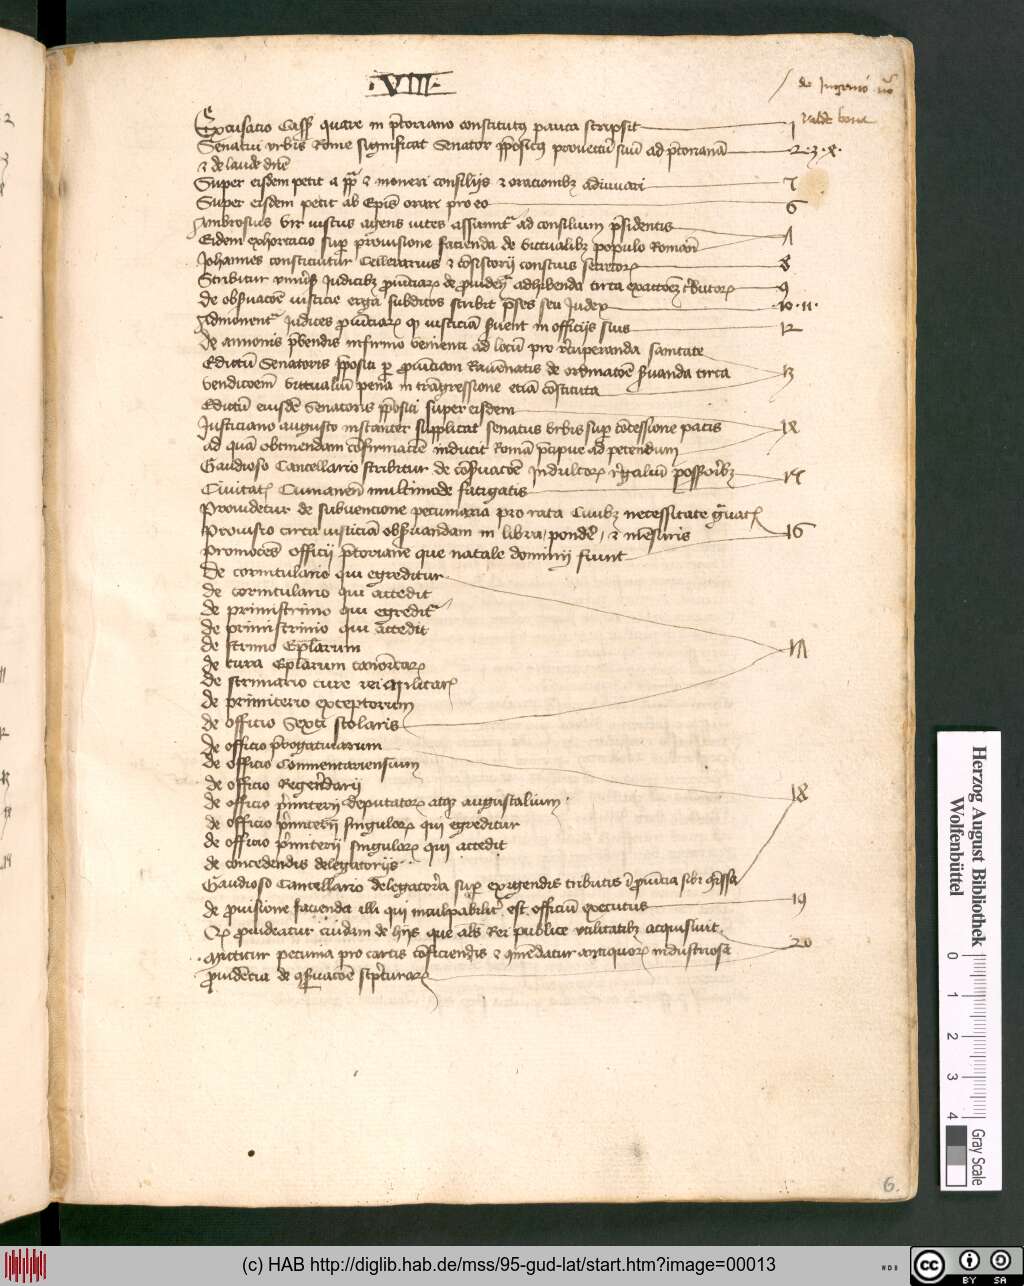 ·VIII·
de Ingenio
valde bona
Excusacio Cass quare in p̄toriano constitutꝰ pauca scripsit 1
Senatui vrbis Rome significat Senator p̄positꝰ prouectū suū ad p̄torianā 2·3·4·
⁊ de laude
Super eisdem petit a pp̄ ⁊ moneri consilijs ⁊ oracionibꝫ adiuuari 5
Super eisdem petit ab Epis orari pro eo 6
Ambrosius vir iustus agens vices assumit᷑ ad consilium p̄sidentis
Eidem exhortacio sup̲ prouisione facienda de victualibꝫ populo Romano 7
Johannes constituitur Cellerarius ⁊ cōsistorij consciuus secretorꝝ 8
Scribitur Judicibꝫ ꝓuinciarꝝ de adhibenda circa 9
de obseruacōe iusticie erga subditos scribit p̄ses seu Judex 10·11·
Admonent᷑ Judices ꝓuinciarꝝ qꝫ iusticiā seruent in officijs suis 12
de annonis p̄bendis infirmo venienti ad locū pro recuperanda sanitate
Edictū Senatoris p̄positi per ꝓuinciam Rauennatis de ordinacōe seruanda circa 13
vendicōem victualiū pena in trāsgressione etiā cōstituta
Edictū eiusdē Senatoris p̄positi super eisdem
Justiniano augusto instanter supplicat senatus vrbis sup̲ cōcessione pacis 14
ad quā obtinendam cōfirmacōē inducit Romā p̄cipue ad petendum
Gaudioso Cancellario scribitur de cōseruacōe Indultorꝝ possessoribꝫ 15
Ciuitat᷑ Cumanen multimode fatigatis
Prouidetur de subuencione pecuniaria pro rata Ciuibꝫ necessitate grauat᷑
Prouisio circa iusticiā obseruandam in libra, ponderi, ⁊ mēsuris 16
Promocōes officij p̄toriane que natale dominij fiunt
De cornculario qui egreditur
de cornculario qui accedit
de primiscrinio qui egredit᷑
de primiscrinio qui accedit
de scrinio Ep̄larum 17
de cura Ep̄larum canonicarꝝ
de scriniario cure rei militar᷑
de primicerio exceptorum
de officio Sexti scolaris
de officio p̄rogatiuarum
de officio Commentariensium
de officio Regendarij
de officio p̄micerij deputatorꝝ atqꝫ augustalium· 18
de officio p̄micerij singulorꝝ qui egreditur
de officio p̄micerij singulorꝝ qui accedit
de concedendis delegatorijs
Gaudioso Cancellario delegatoria sup̲ exigendis tributis ī ꝓuincia sibi cōmissa
de ꝓuisione facienda illi qui inculpabilit᷑ est officiū executus 19
ꝓuideatur cuidam de hijs que alijs Rei publice vtilitatibꝫ acquisiuit· 20
mittitur pecunia pro cartis cōficiendis ⁊ cōmēdatur antiquorꝝ industriosa
ꝓuidēcia de cōseruacōe scripturarꝝ
6.
Herzog August Bibliothek
Wolfenbüttel
0
1
2
3
4
Gray Scale
(c) HAB http://diglib.hab.de/mss/95-gud-lat/start.htm?image=00013
WDB
cc BY SA